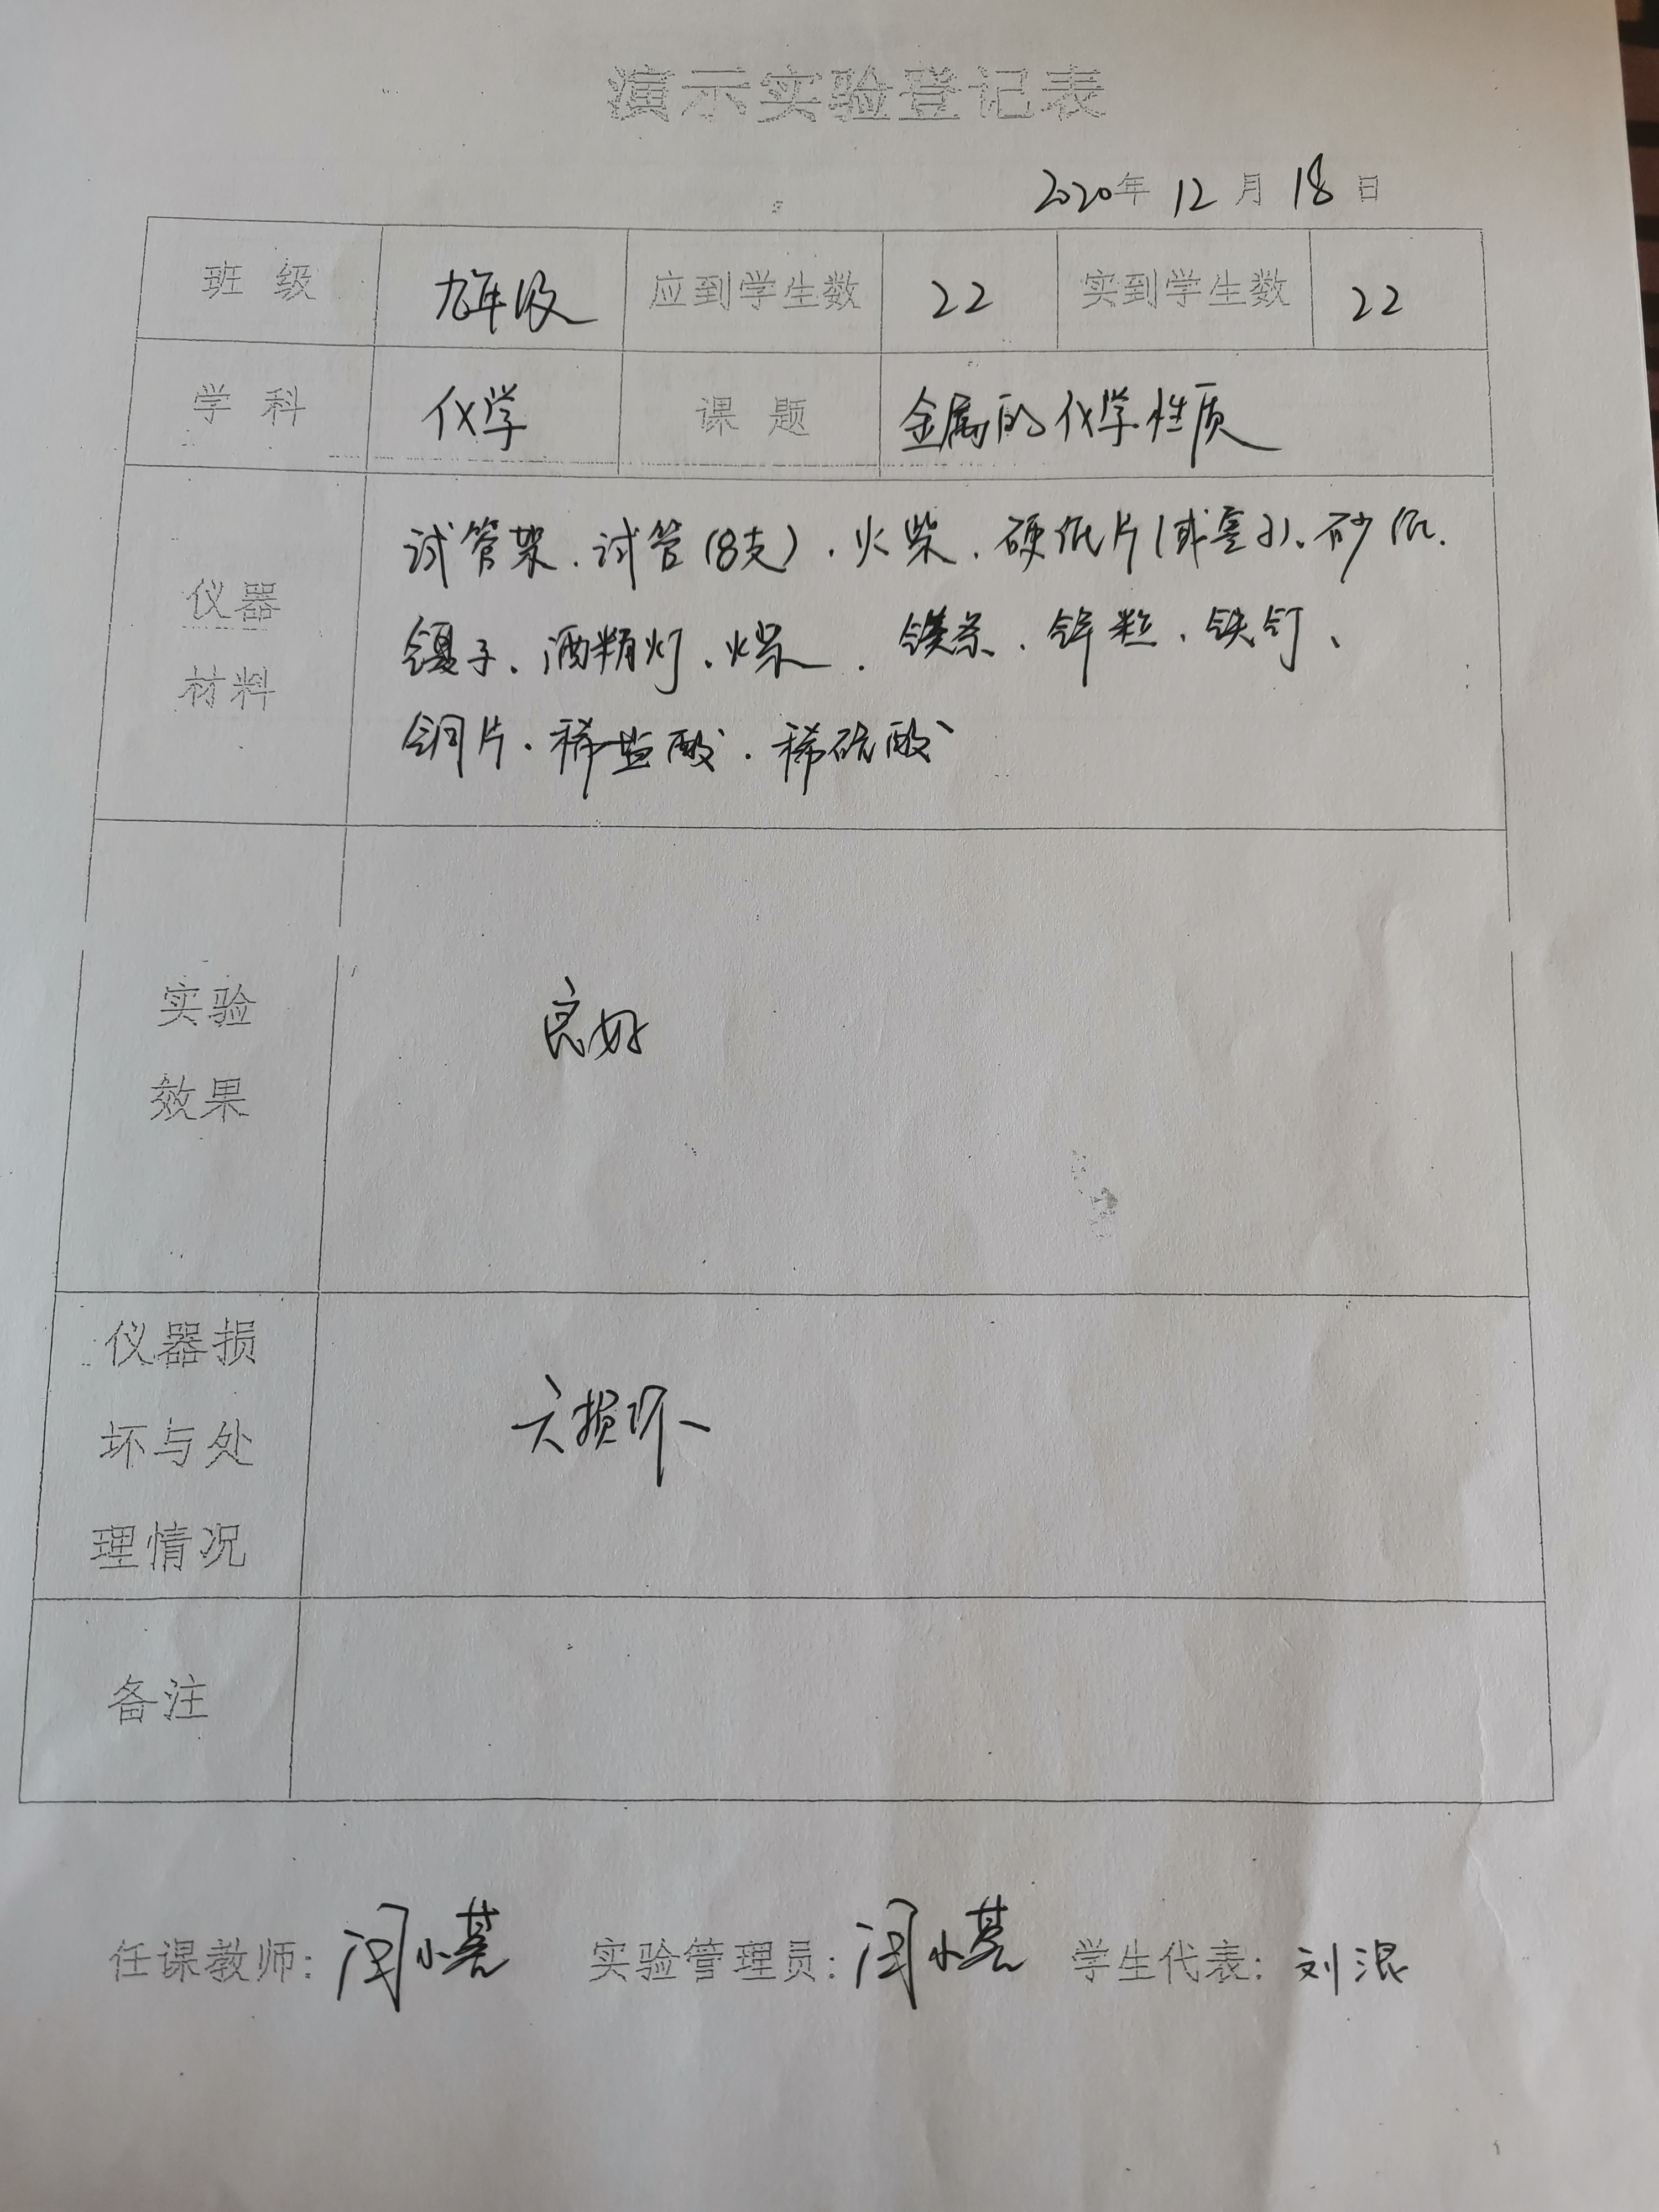 演示实验登记表
2020年 12月 18日
班级 九年级 应到学生数 22 实到学生数 22
学科 化学 课题 金属的化学性质
仪器
材料
试管架、试管(8支)、火柴、硬纸片(或盖子)、砂纸、
镊子、酒精灯、火柴、镁条、锌粒、铁钉、
铜片、稀盐酸、稀硫酸
实验
效果
良好
仪器损
坏与处
理情况
无损坏
备注
任课教师: 实验管理员: 学生代表: 刘